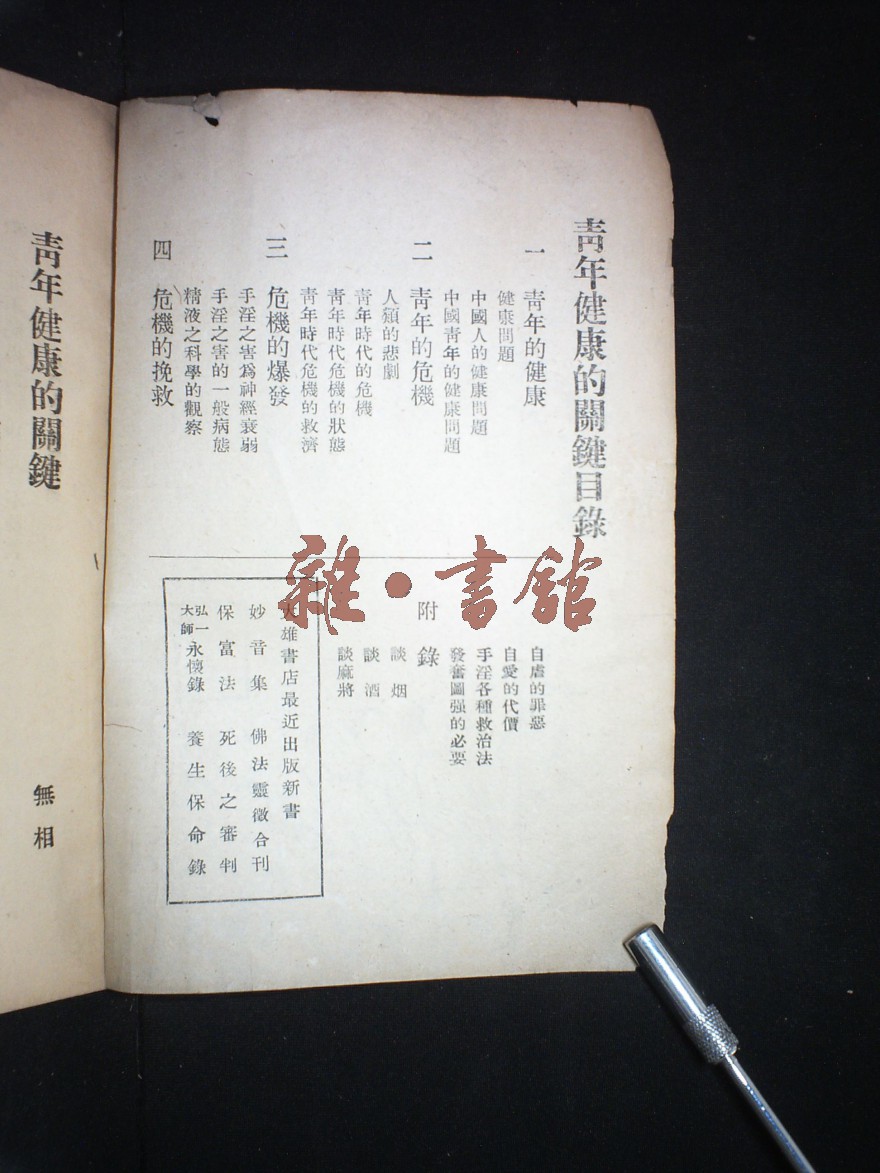 青年健康的關鍵目錄
一 青年的健康
健康問題
中國人的健康問題
中國青年的健康問題
二 青年的危機
人類的悲劇
青年時代的危機
青年時代危機的狀態
青年時代危機的救濟
三 危機的爆發
手淫之害爲神經衰弱
手淫之害的一般病態
精液之科學的觀察
四 危機的挽救
自虐的罪惡
自愛的代價
手淫各種救治法
發奮圖强的必要
附錄
談烟
談酒
談麻將
大雄書店最近出版新書
妙音集 佛法靈徵合刊
保富法 死後之審判
弘一大師永懷錄 養生保命錄
青年健康的關鍵
無相
雜·書館